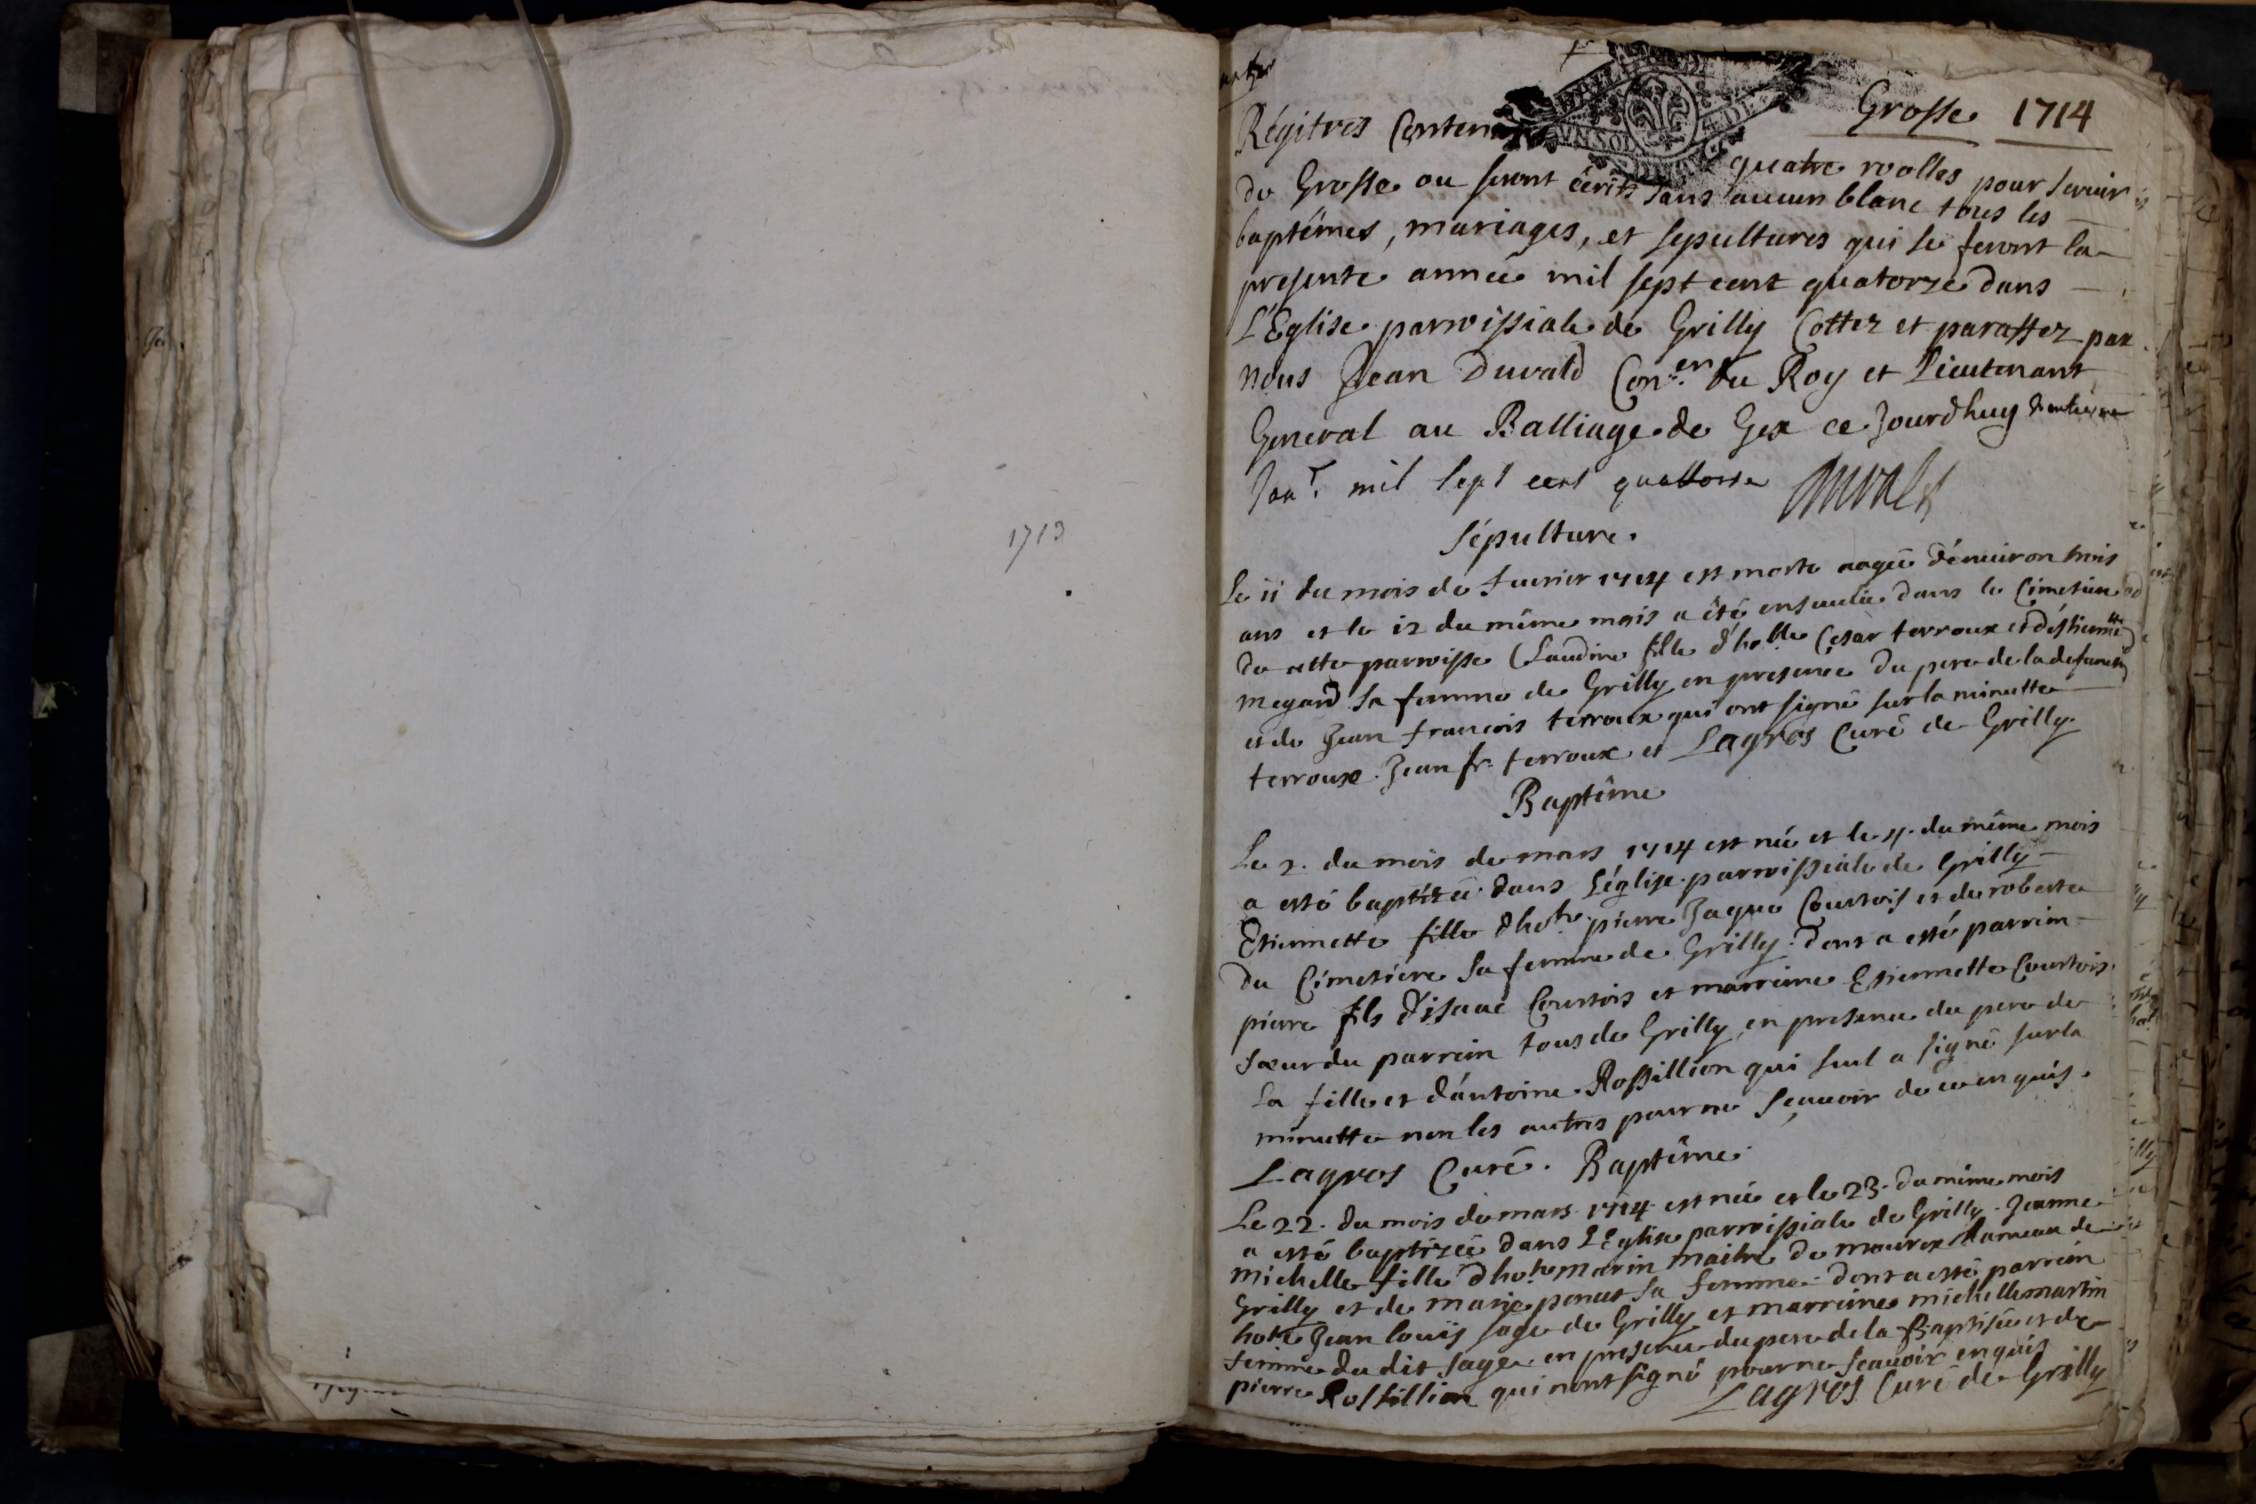 1713
Grosse 1714
Régitres Contenant quatre roolles pour servir
de Grosse ou seront écrits sans aucun blanc tous les
baptêmes, mariages, et sepultures qui se feront la
presente année mil sept cent quatorze dans
L'Eglise parroissiale de Grilly Cottez et paraffez par
nous Jean Duvald Con.er du Roy et Lieutenant
General au Balliage de Gex ce Jourdhuy
Jan.r mil sept cent quattorze Duvald
Sépulture.
Le 11 du mois de feurier 1714 est morte aagée d'enuiron trois
ans et le 12 du même mois a été enseuelie dans le Cimetiere
de cette parroisse Claudine fille d'ho.ble César terroux et d'éstienne
megard sa femme de Grilly en presence du pere de la defuncte
et de Jean francois terroux qui ont signé sur la minutte
terroux. Jean fr. terroux et Lagros Curé de Grilly.
Baptême
Le 2. du mois de mars 1714 est née et le 4. du même mois
a esté baptizée dans l'église parroissiale de Grilly
Etiennette fille d'ho.te pierre Jaque Courtois et de roberte
du Cimetiere sa femme de Grilly. dont a esté parrein
pierre fils d'isaac Courtois et marreine Etiennette Courtois
sœur du parrein tous de Grilly, en presence du pere de
la fille et d'antoine Rossillion qui seul a signé sur la
minutte non les autres pour ne sçauoir de ce enquis.
Lagros Curé. Baptême.
Le 22. du mois de mars 1714 est née et le 23. du même mois
a esté baptizée dans l'Eglise parroissiale de Grilly. Jeanne
michelle fille d'ho.te marin maitre de mourex hameau de
Grilly et de marie ponet sa femme. dont a esté parrein
ho.te Jean louis sage de Grilly et marreine michelle martin
femme du dit sage. en presence du pere de la Baptisée et de
pierre Rossillion qui n'ont signé pour ne sçauoir enquis
Lagros Curé de Grilly